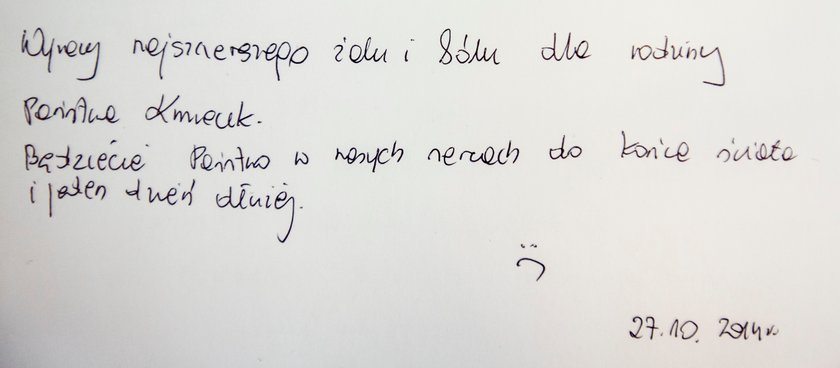 Wyrazy najszczerszego żalu i bólu dla rodziny
Państwa Kmiecik.
Będziecie Państwo w naszych sercach do końca świata
i jeden dzień dłużej.
:(
27.10.2014r.